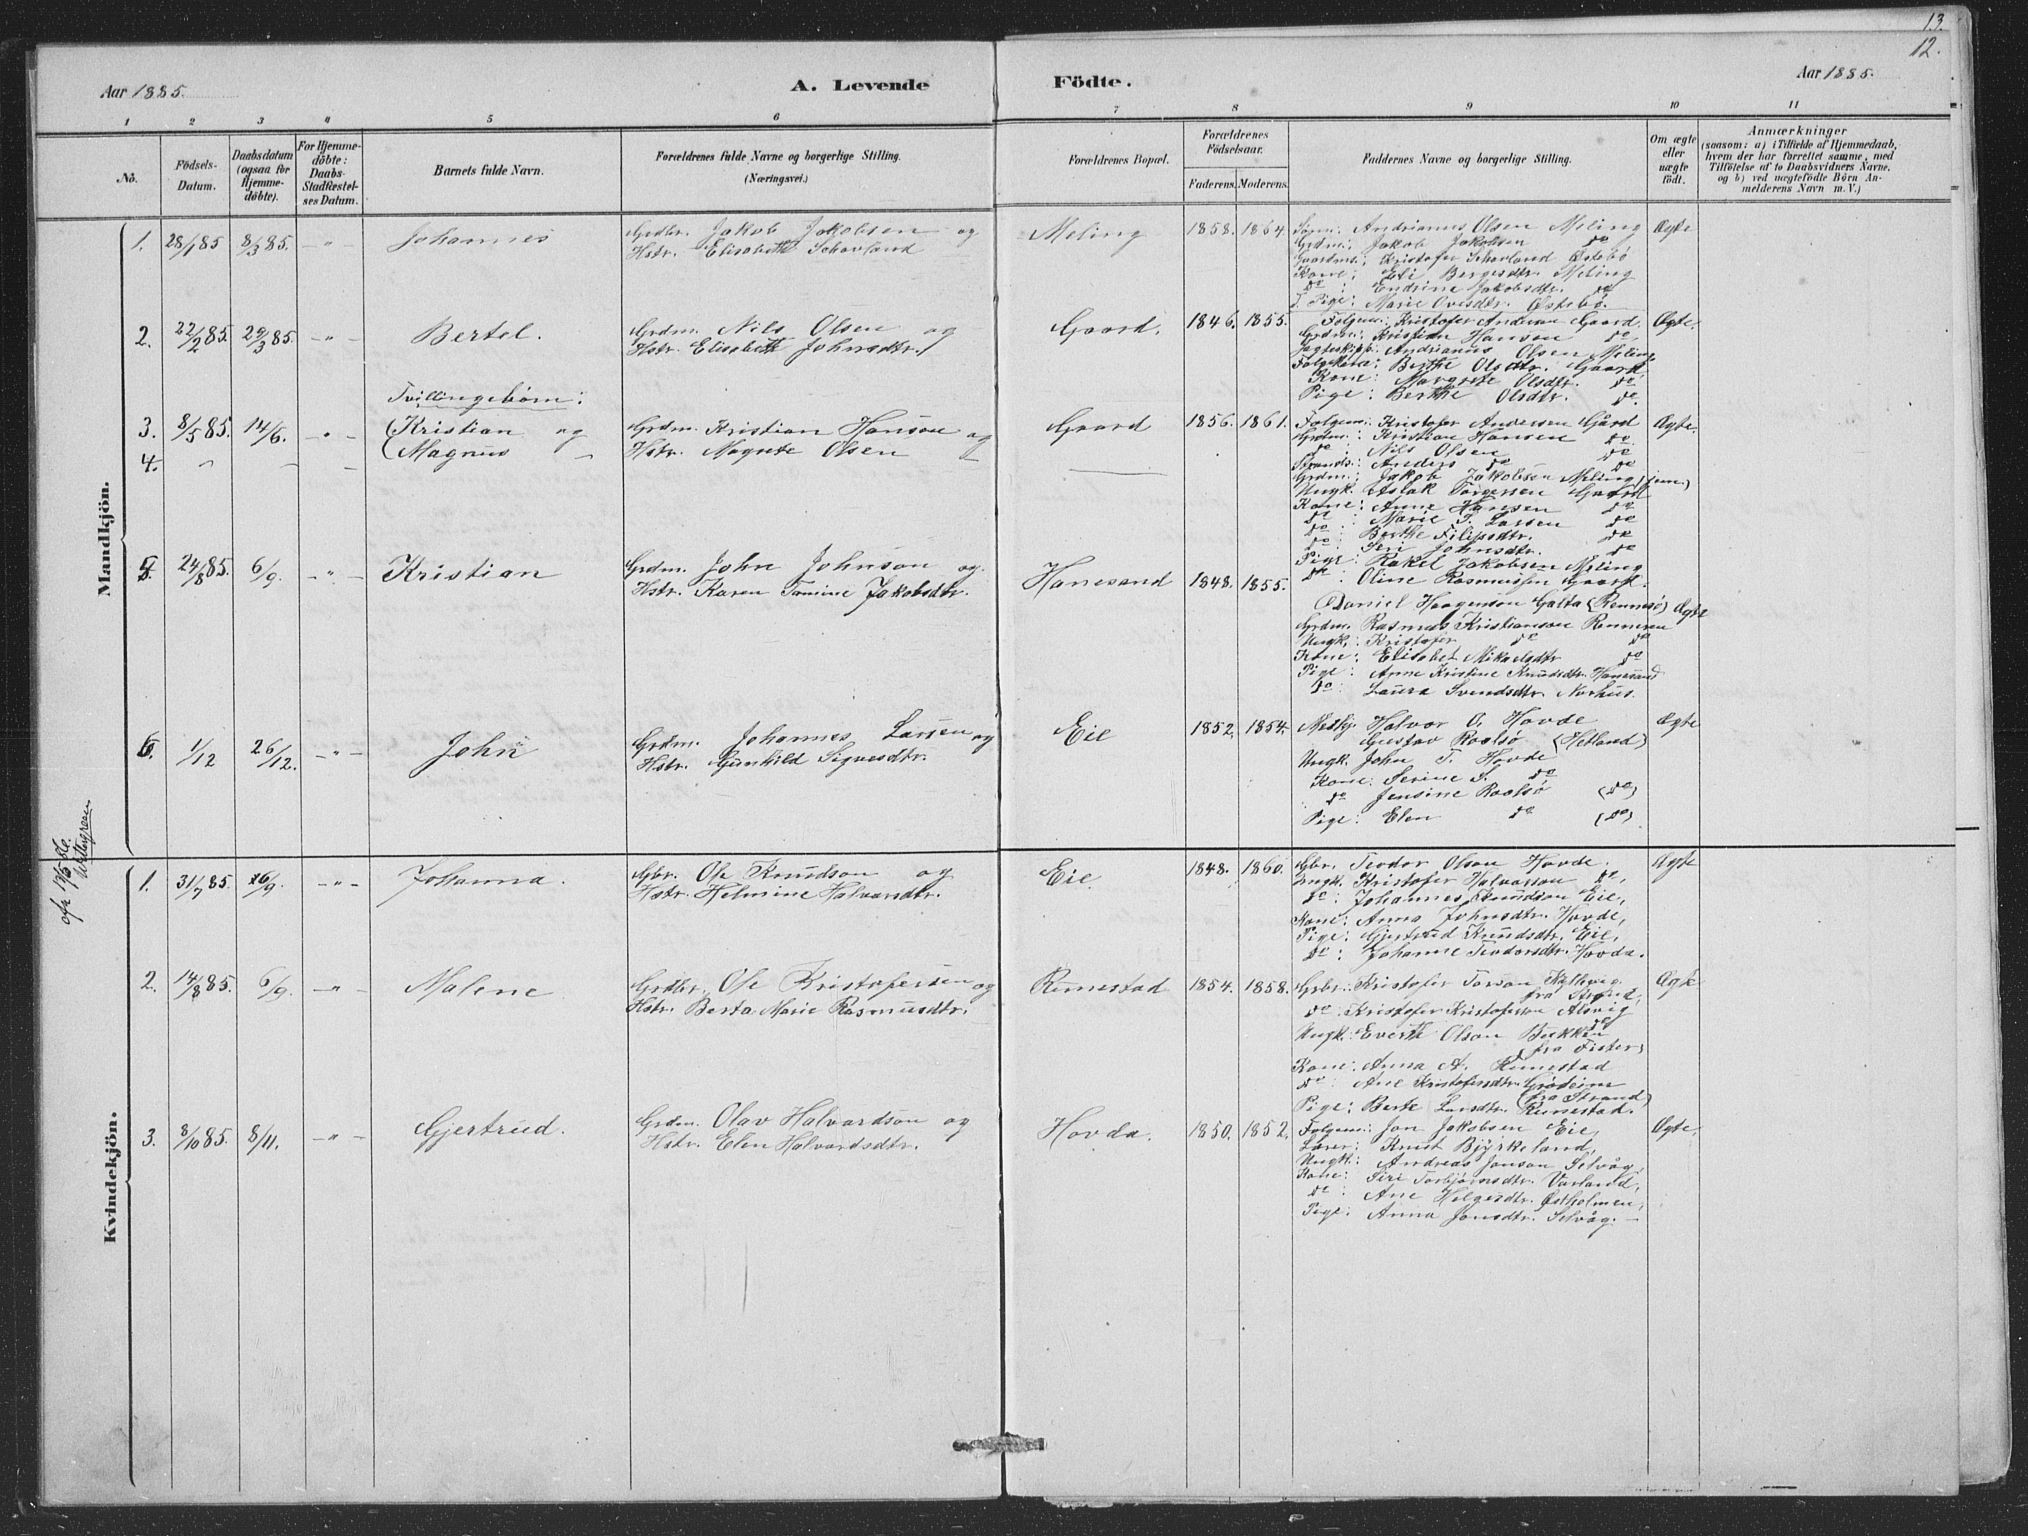 13.
12.
Aar 1885.
A. Levende
Födte.
Aar 1885.
1 2 3 4 5 6 7 8 9 10 11
No.
Födsels-Datum.
Daabsdatum (ogsaa for Hjemme-döbte).
For Hjemme-döbte: Daabs-Stadfæstel-ses Datum.
Barnets fulde Navn.
Forældrenes fulde Navne og borgerlige Stilling. (Næringsvei.)
Forældrenes Bopæl.
Forældrenes Födselsaar.
Faderens. Moderens.
Faddernes Navne og borgerlige Stilling.
Om ægte eller uægte födt.
Anmærkninger
(saasom: a) i Tilfælde af Hjemmedaab, hvem der har forrettet samme, med Tilföielse af to Daabsvidners Navne, og b) ved uægtefödte Börn An-melderens Navn m. V.)
Mandkjön.
1. 28/1 85 8/3 85. - " - Johannes
Grdbr. Jakob Jakobsen og
Hstr. Elisabeth Schovland
Meling 1858. 1864.
Andrianus Olsen Meling
Grdm: Jakob Jakobsen do
Gaardm: Kristofer Schovland Östebö
Kone: Eli Bergesdtr. Meling
do: Endrine Jakobsdtr. do
T. Pige: Marie Ovesdtr. Östebö.
Ægte
2. 22/2 85. 29/3 85. - " - Bertel.
Grdm. Nils Olsen og
Hstr. Elisabeth Johnsdtr.
Gaard. 1846. 1855.
Folgem: Kristofer Andersen Gaard.
Grdm: Kristian Hansen do
Jagteskipp: Andrianus Olsen Meling
Folgekone: Berthe Olsdtr. Gaard
Kone: Margrete Olsdtr. do
Pige: Berthe Olsdtr. do
Ægte
Tvillingebörn:
3. 8/5 85. 14/6. - " - Kristian og
4. " - - Magnus -
Grdm. Kristian Hansen og
Hstr. Magrete Olsen -
Gaard 1856. 1861.
Folgem: Kristofer Andersen Gård
Grdm: Kristian Hansen do
do: Nils Olsen do
Strands: Anders do do
Grdm: Jakob Jakobsen Meling
Ungk. Aslak Torgersen Gaard
Kone: Anne Hansen do
do: Marie T. Larsen do
do: Berthe Filipsdtr. do
do: Seri Johnsdtr. do
Pige: Rakel Jakobsen Meling
do: Oline Rasmussen Gaard.
Ægte.
5. 24/8 85. 6/9. - " - Kristian
Grdm. John Johnson og
Hstr. Karen Tomine Jakobsdtr.
Hanesand 1848. 1855.
Daniel Haagenson Galta (Rennesö)
Grdm. Rasmus Kristianson Rennesen
Ungk: Kristofer do do
Kone: Elisabet Mikaelsdtr do
Pige: Anne Kristine Knudsdtr. Hanesand
do: Laura Svendsdtr. Norhus.
Ægte
6. 1/12 26/12. - " - John
Grdm. Johannes Larsen og
Hstr. Gunhild Sigvesdtr.
Eie 1852. 1854.
Halvor O. Hovde
Gustav Roalsö (Hetland)
Ungk. John T. Hovde
Kone: Serine S. do
do Jensine Roalsö (do)
Pige: Elen do (do)
Ægte
Kvindekjön.
1. 31/7 85. 26/9. - " - Johanna.
Gbr. Ole Knudson og
Hstr. Helmine Halvarsdtr.
Eie 1848. 1860.
Gbr. Teodor Olson Hovde.
Ungk. Kristofer Halvorson do,
do: Johannes Knudson Eie,
Kone: Anna Johnsdtr. Hovde,
Pige: Gjertrud Knudsdtr. Eie,
do: Johanne Teodorsdtr. Hovda.
Ægte
2. 14/8 85. 6/9. - " - Malene
Grdbr. Ole Kristofersen og
Hstr. Berta Marie Rasmusdtr.
Runestad 1854. 1858.
Grbr: Kristofer Torson
fra Strand,
do: Kristofer Kristoferson Alsvig
do
Ungk: Everth Olson Bækken
fra Fister,
Kone: Anna A. Runestad
do: Ane Kristofersdtr. Grödeim
(fra Strand)
Pige: Berte Larsdtr. Runestad.
Ægte
3. 8/10 85. 8/11. - " - Gjertrud.
Grdm. Olav Halvardson og
Hstr. Elen Halvardsdtr.
Hovda. 1850. 1852.
Folgem: Jon Jakobsen Eie,
Lærer: Knut Bjyrkeland,
Ungk: Andreas Jonson Selvåg,
Kone: Siri Torbjörnsdtr. Varland,
do: Ane Helgesdtr. Ostholmen,
Pige: Anna Jonsdtr. Selvåg. -
Ægte.